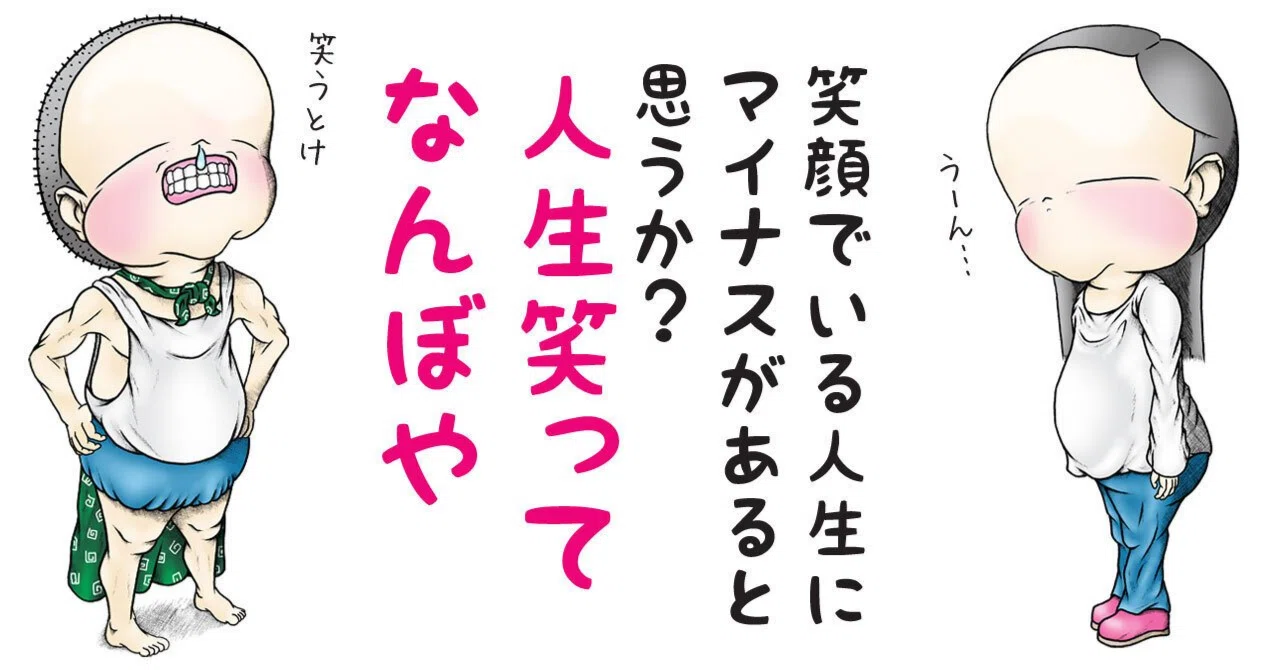 うーん…
笑顔でいる人生に
マイナスがあると
思うか?
人生笑って
なんぼや
笑うとけ